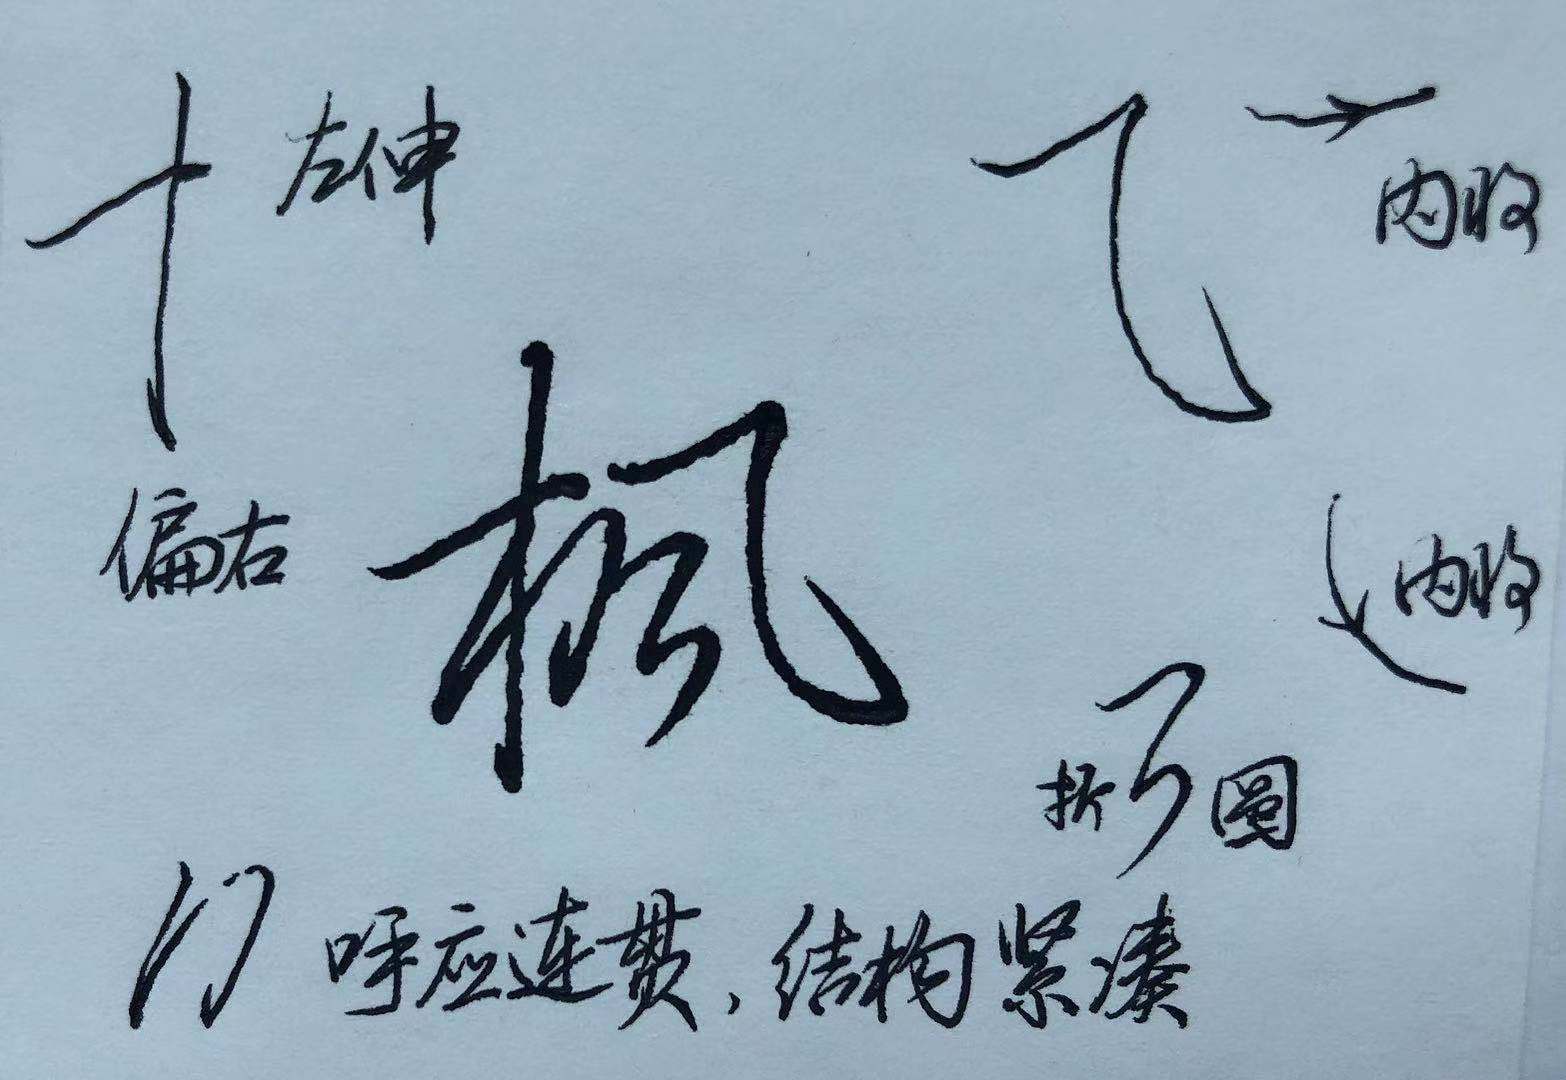 左伸
内收
偏右
枫
内收
折
圆
呼应连贯,结构紧凑